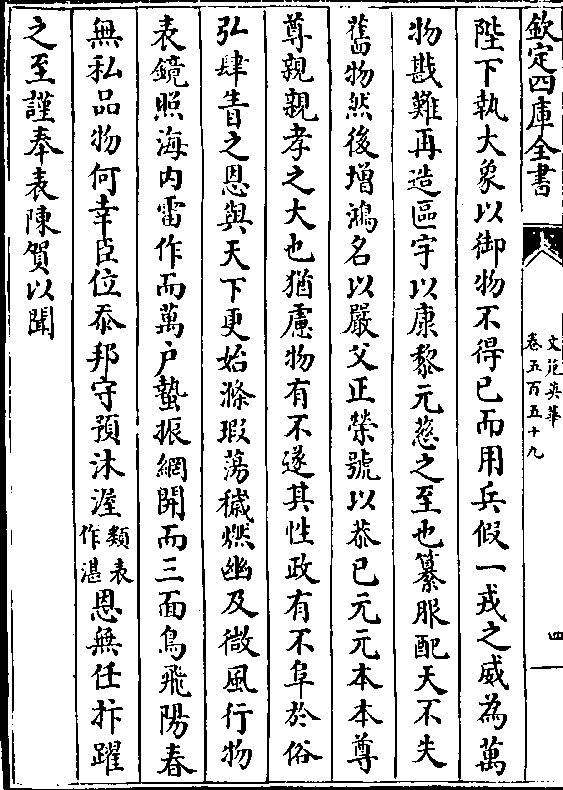 欽定四庫全書
文苑英華
卷五百五十九
四
陛下執大象以御物不得已而用兵假一戎之威為萬
物戡難再造區宇以康黎元慈之至也纂服配天不失
舊物然後增鴻名以嚴父正榮號以恭已元元本本尊
尊親親孝之大也猶慮物有不遂其性政有不阜於俗
弘肆眚之恩與天下更始滌瑕蕩穢燃幽及微風行物
表鏡照海内雷作而萬户蟄振網開而三面鳥飛陽春
無私品物何幸臣位忝邦守預沐渥類表作湛恩無任抃躍
之至謹奉表陳賀以聞